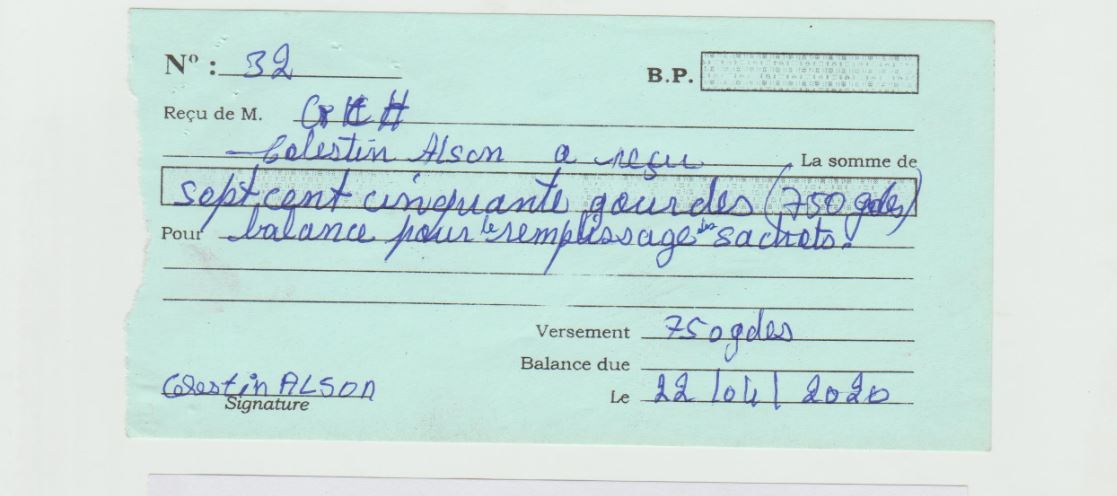 Nº : 32
B.P.
Reçu de M.
Celestin Alson a reçu La somme de
sept cent cinquante gourdes (750 gdes)
Pour balance pour le remplissage des sachets.
Versement 750gdes
Balance due
Celestin ALSON
Signature
Le 22/04/2020